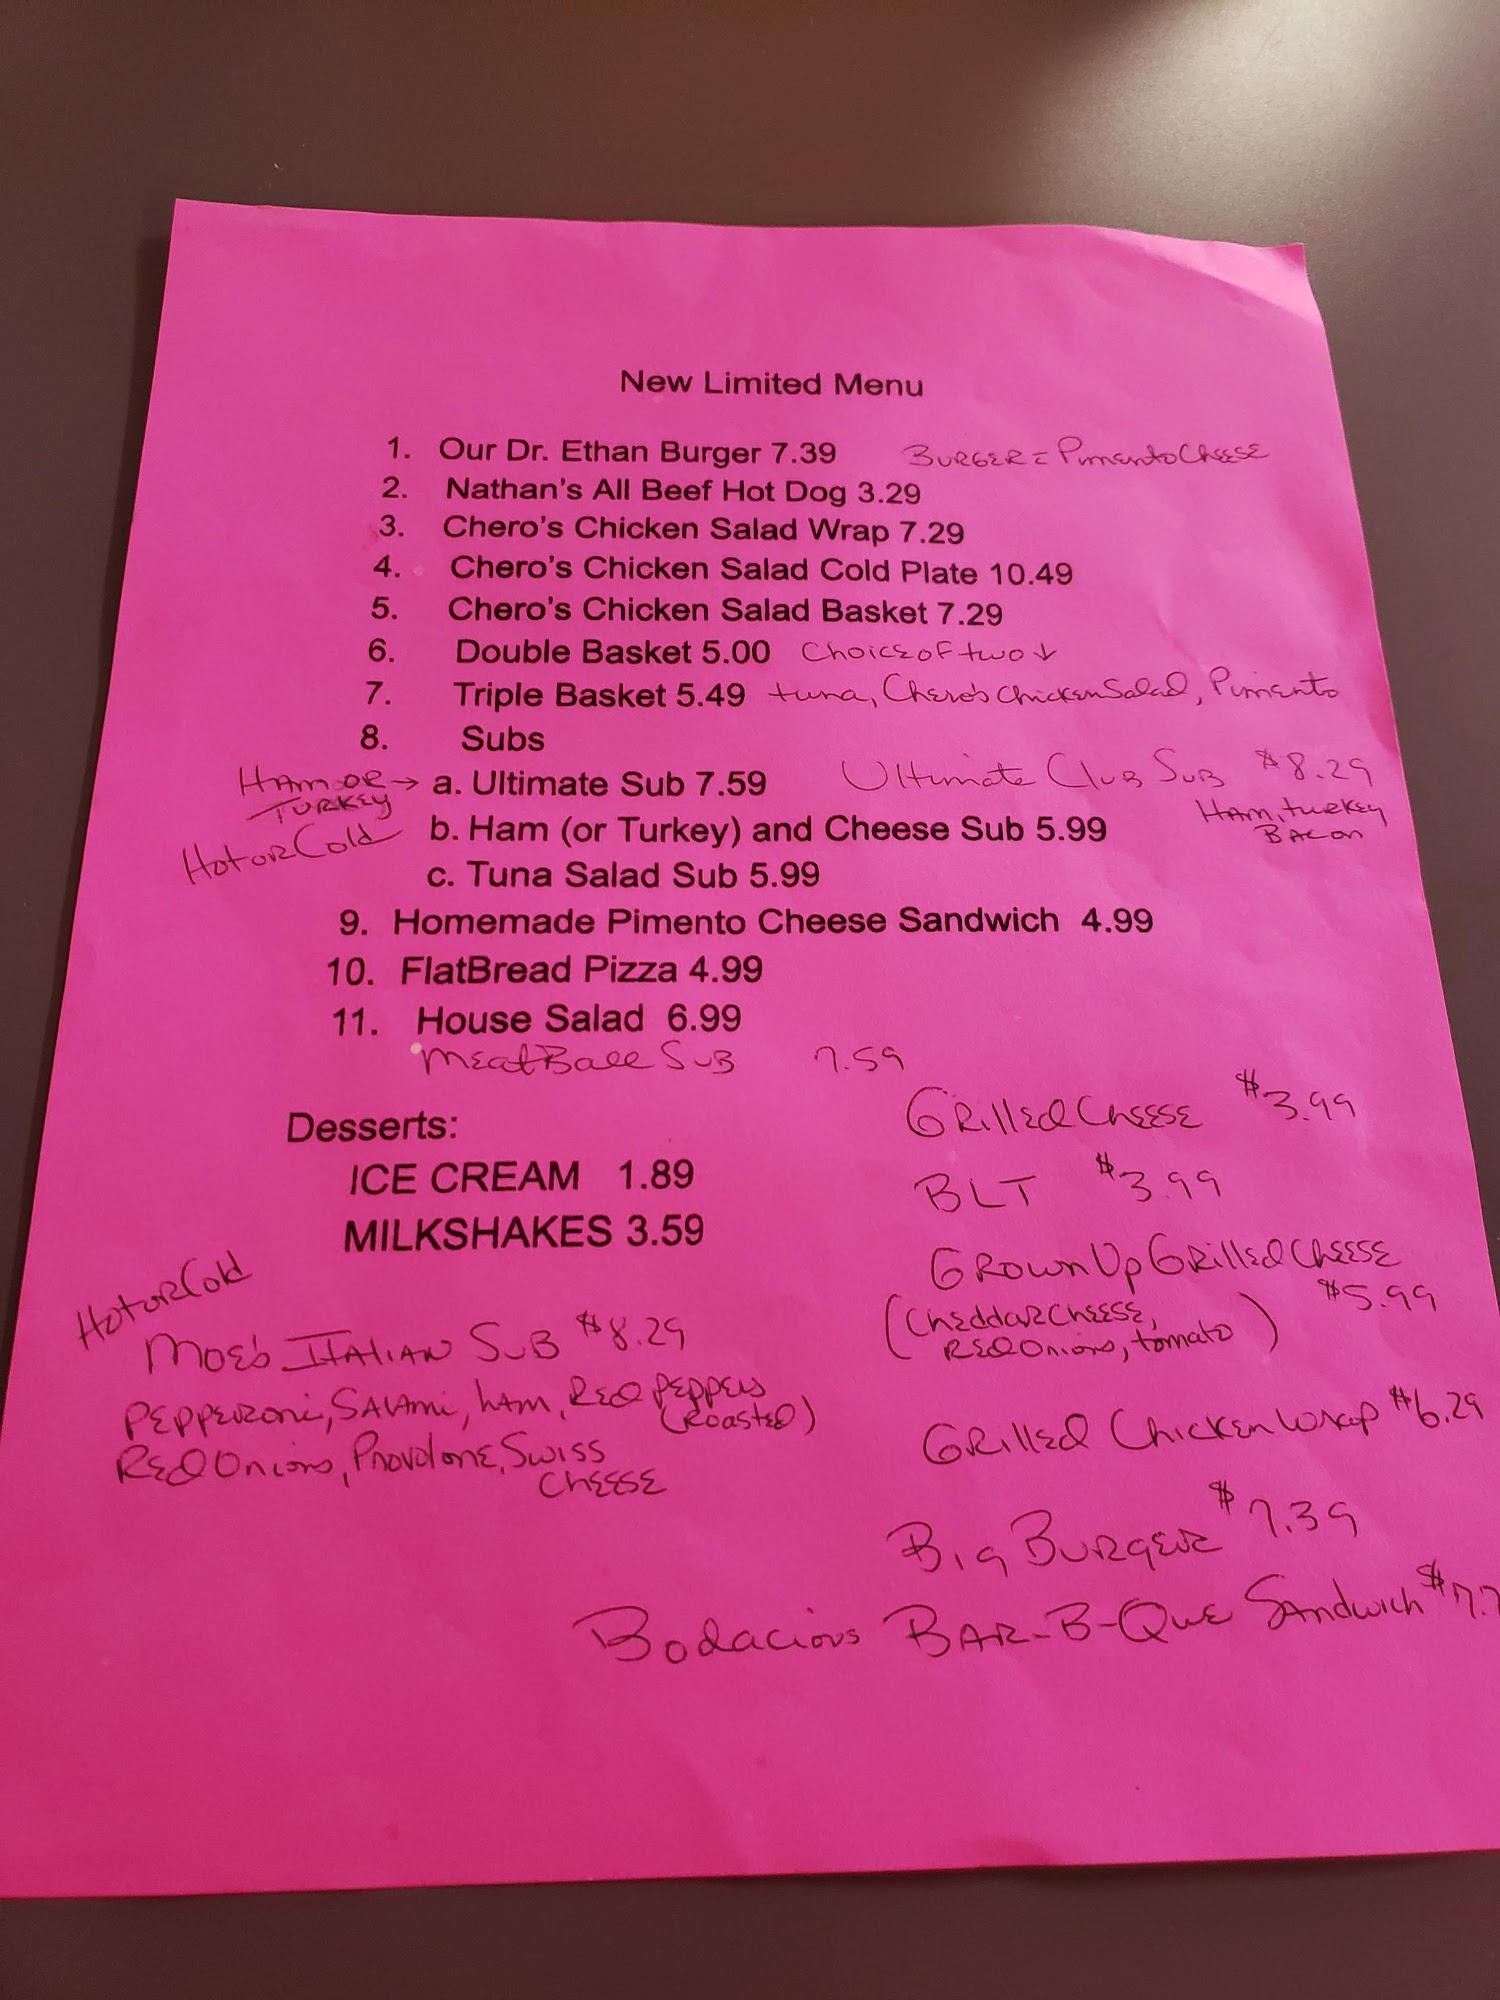 New Limited Menu
1. Our Dr. Ethan Burger 7.39 BURGER = Pimento Cheese
2. Nathan's All Beef Hot Dog 3.29
3. Chero's Chicken Salad Wrap 7.29
4. Chero's Chicken Salad Cold Plate 10.49
5. Chero's Chicken Salad Basket 7.29
6. Double Basket 5.00 Choice of two ↓
7. Triple Basket 5.49 tuna, Chero's Chicken Salad, Pimento
8. Subs
HAM OR → a. Ultimate Sub 7.59 Ultimate Club Sub $8.29
TURKEY
Ham, turkey
Hot or Cold b. Ham (or Turkey) and Cheese Sub 5.99
Bacon
c. Tuna Salad Sub 5.99
9. Homemade Pimento Cheese Sandwich 4.99
10. FlatBread Pizza 4.99
11. House Salad 6.99
MeatBall Sub 7.59
Desserts:
ICE CREAM 1.89
MILKSHAKES 3.59
Grilled Cheese $3.99
BLT $3.99
Grown Up Grilled Cheese
$5.99
(Cheddar Cheese,
Red Onions, tomato)
Grilled Chicken Wrap $6.29
Big Burger $7.39
Bodacious BAR-B-Que Sandwich
Hot or Cold
Moe's ITALIAN SUB $8.29
Pepperoni, SALAmi, hAm, Red Peppers
(Roasted)
Red Onions, Provolone, Swiss
Cheese